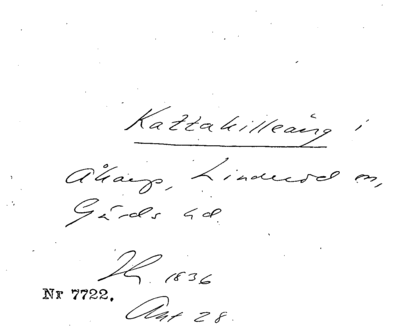 Kattakilleäng i
Åkarp, Linderöd sn,
Gärds hd
Hy. 1836
Nr 7722.
Akt 28.